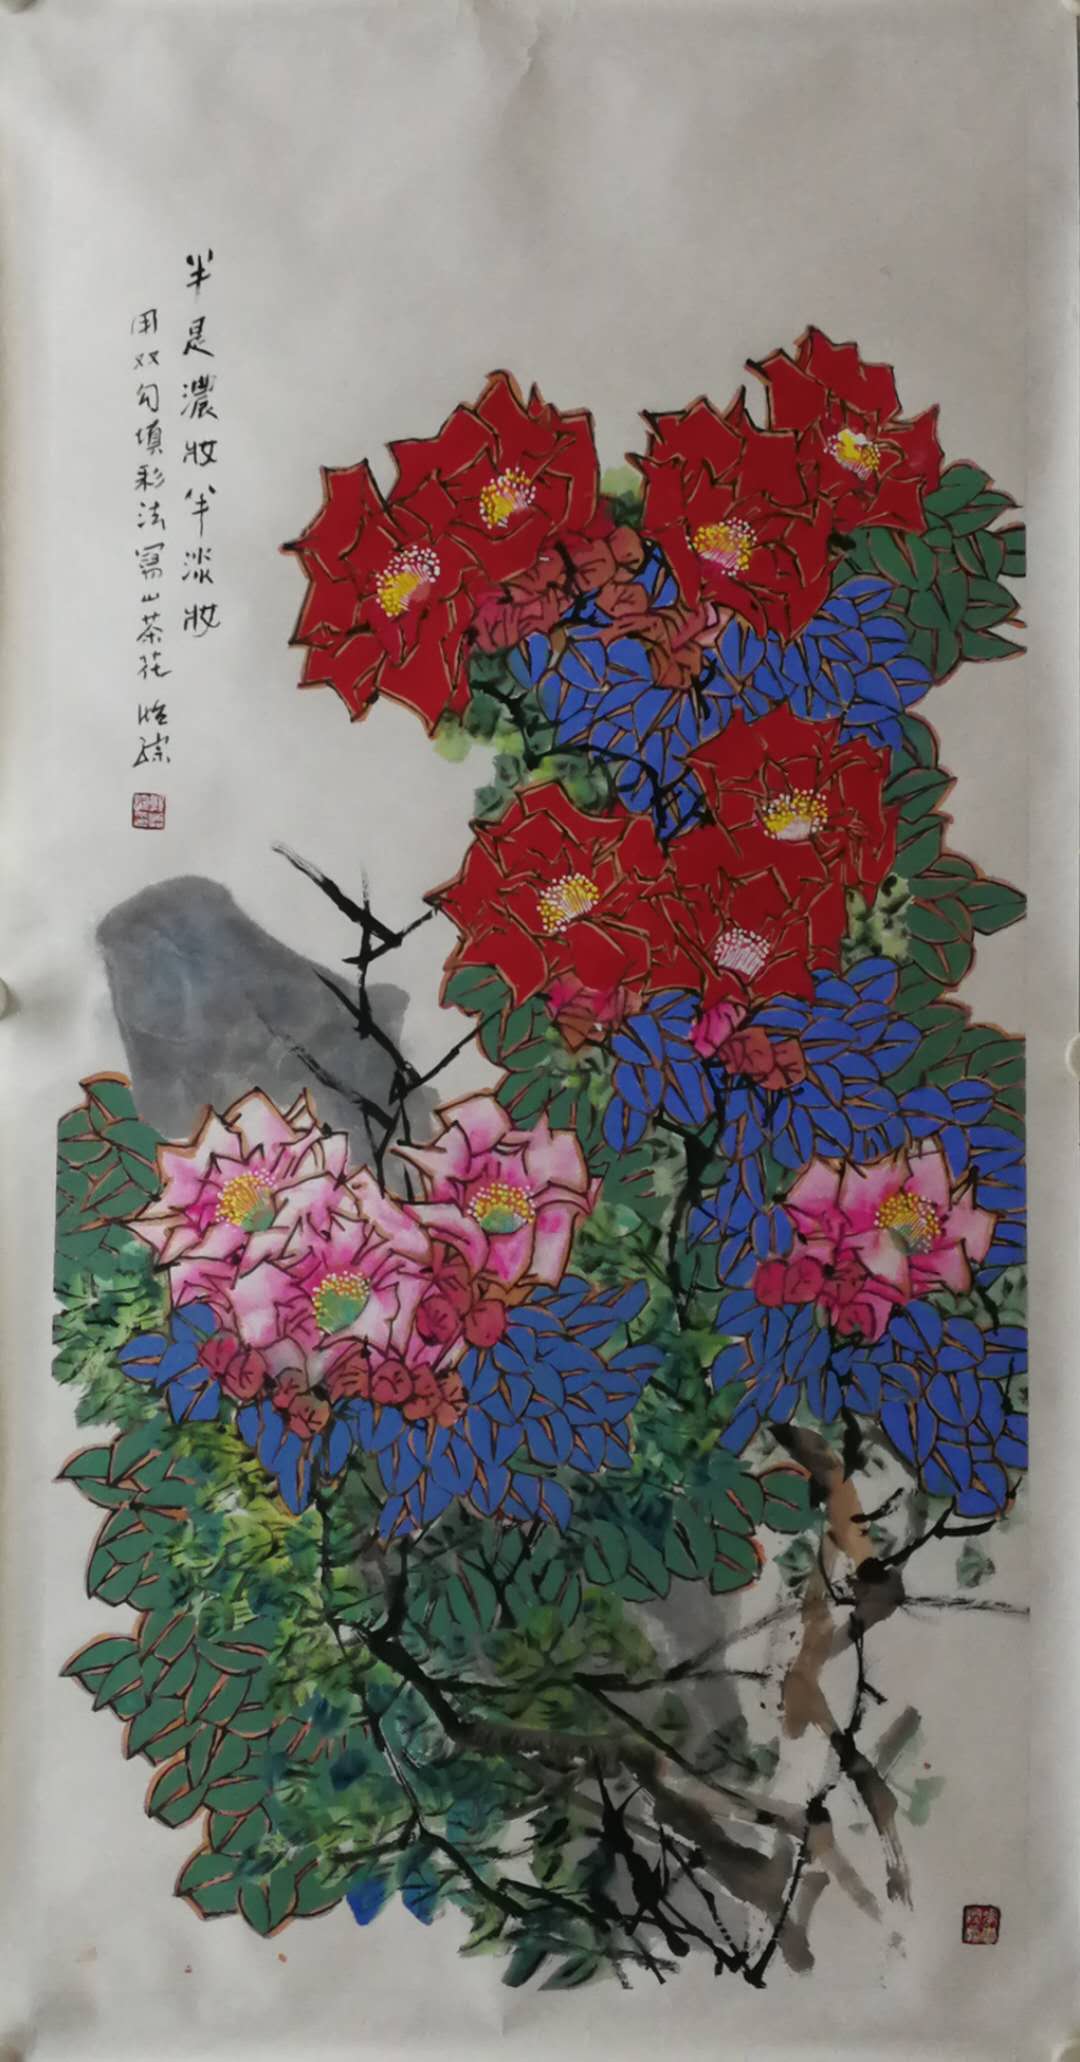 半是濃妝半淡妝
用双勾填彩法寫山茶花